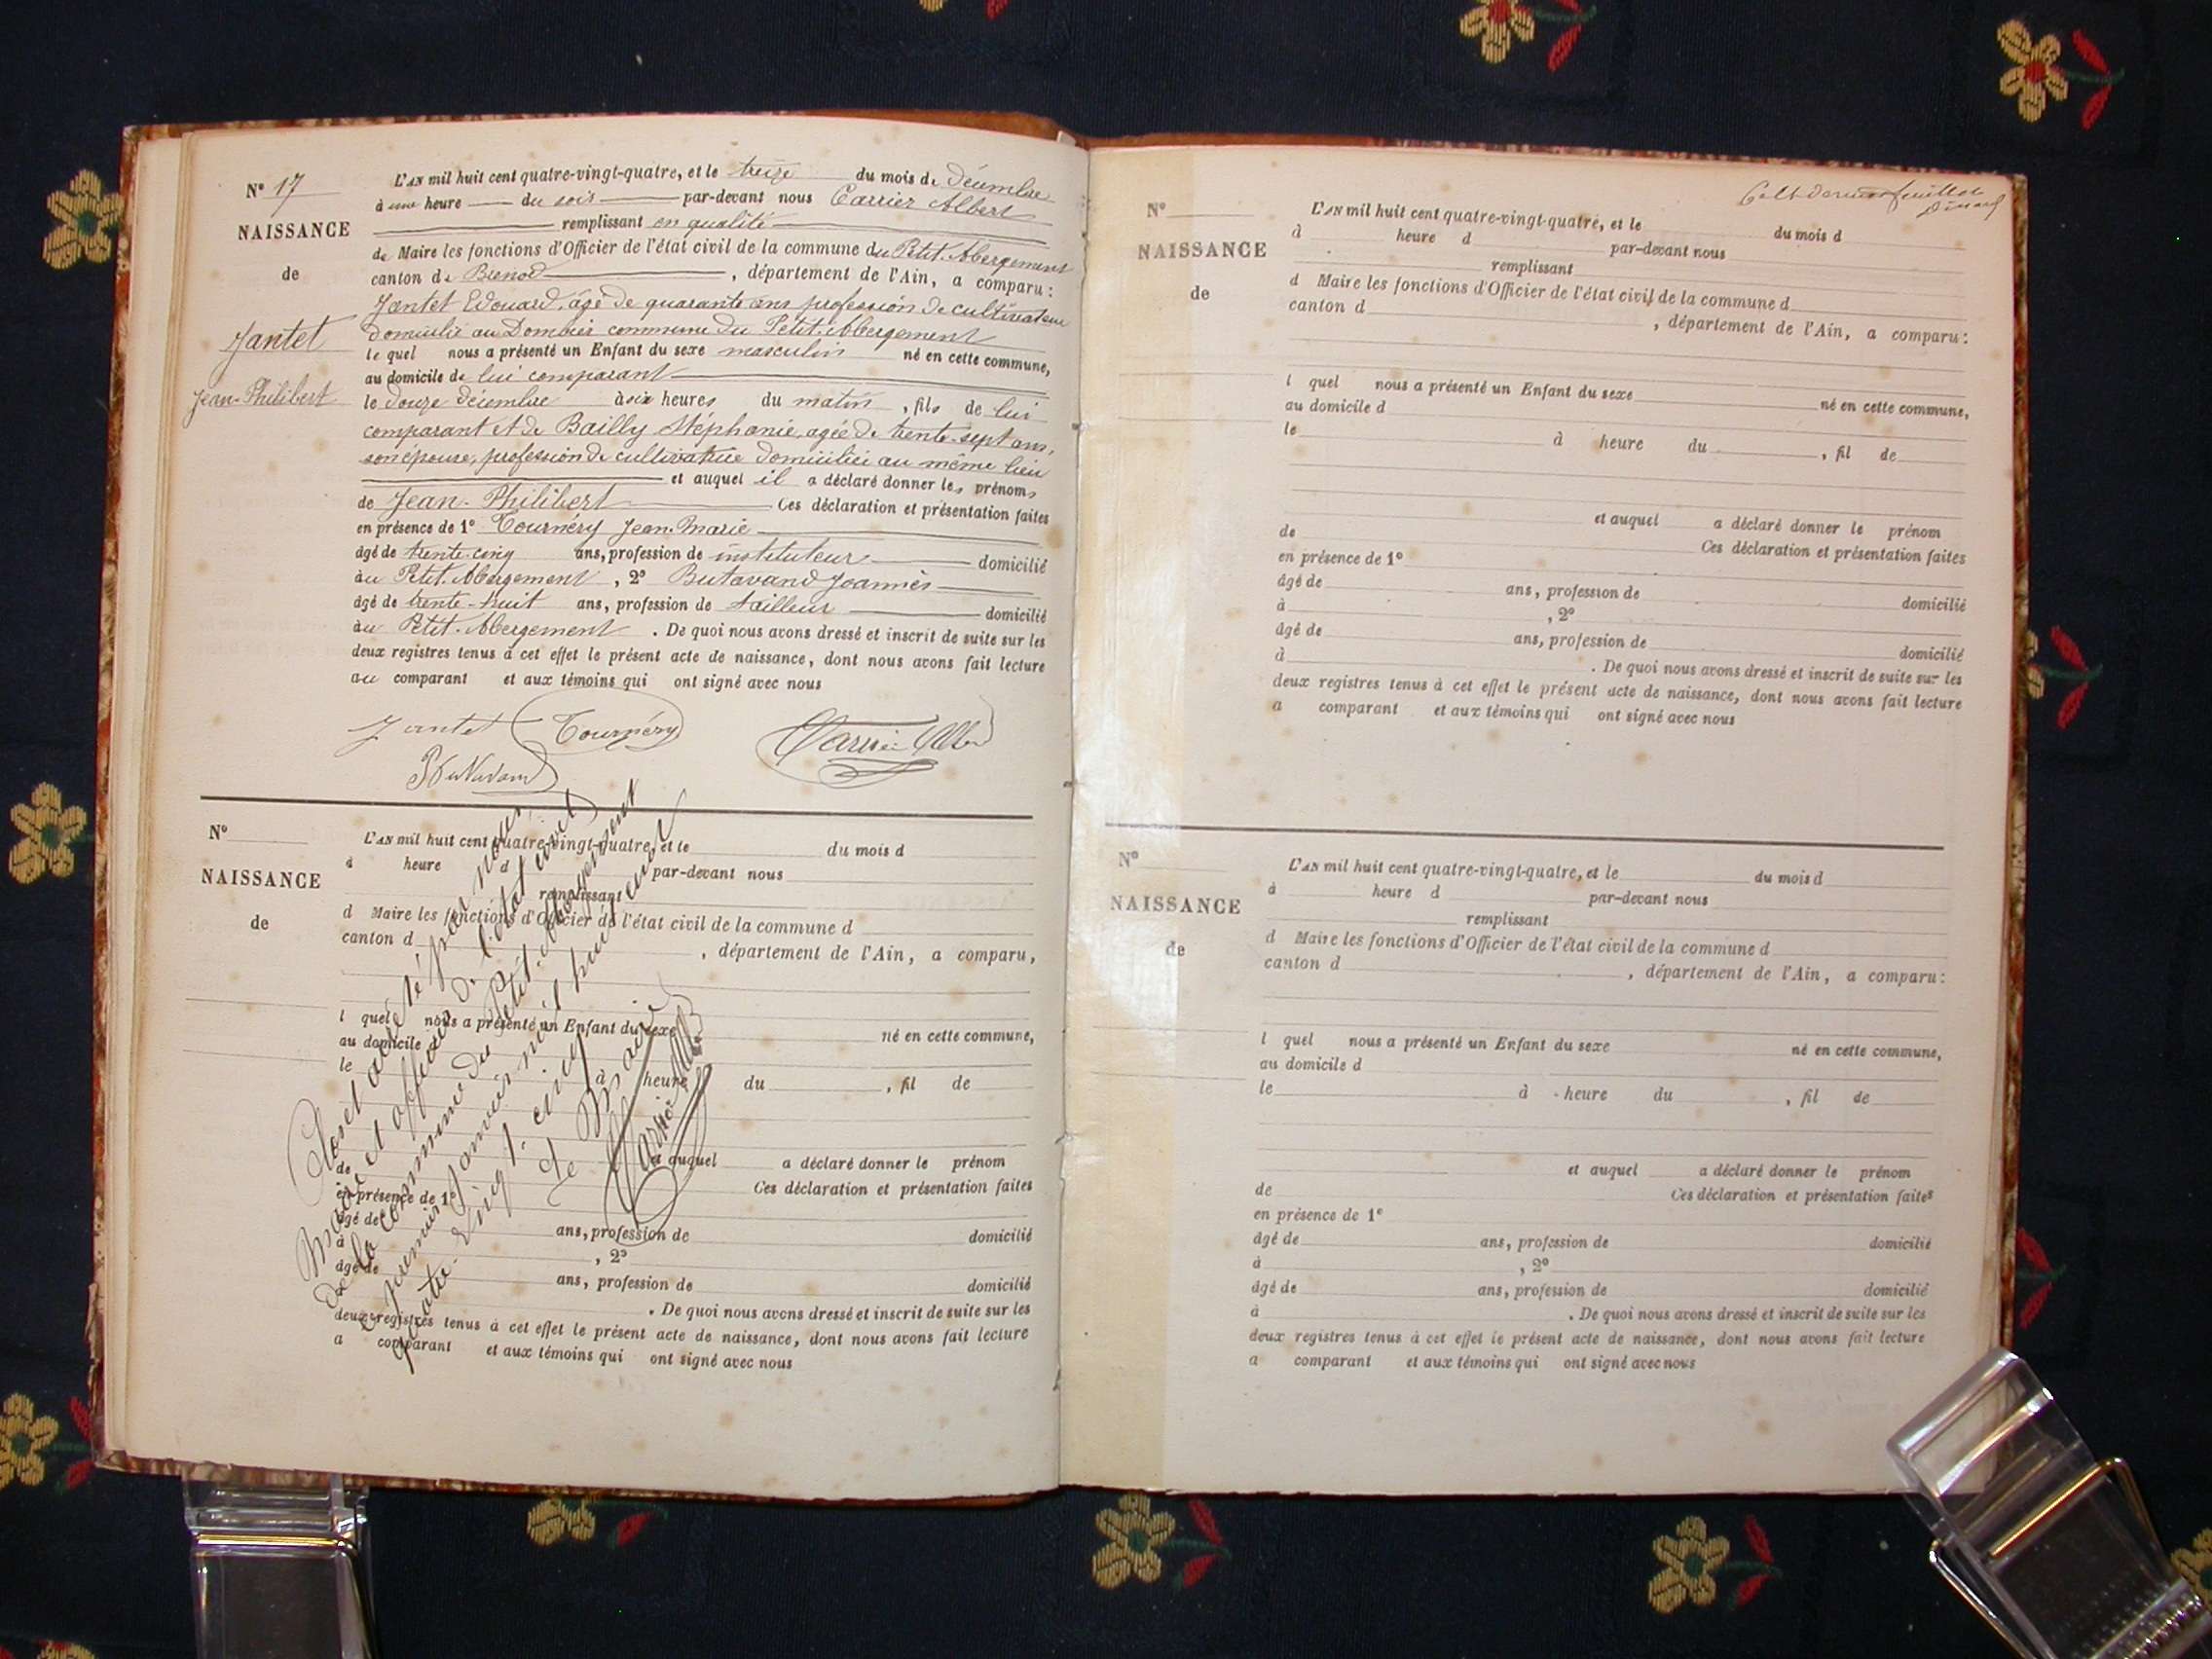 N° 17
NAISSANCE
de
Jantet
Jean-Philibert
L'AN mil huit cent quatre-vingt-quatre, et le treize du mois de Décembre
à une heure du soir par-devant nous Carrier Albert
remplissant en qualité
de Maire les fonctions d'Officier de l'état civil de la commune du Petit-Abergement
canton de Brenod, département de l'Ain, a comparu:
Jantet Edouard, âgé de quarante ans profession de cultivateur
domicilié au Dombier commune du Petit-Abergement
le quel nous a présenté un Enfant du sexe masculin né en cette commune,
au domicile de lui comparant
le douze Décembre à six heures du matin, fils de lui
comparant et de Bailly Stéphanie, agée de trente-sept ans,
son épouse, profession de cultivatrice domiciliée au même lieu
et auquel il a déclaré donner les prénoms
de Jean-Philibert Ces déclaration et présentation faites
en présence de 1° Tournéry Jean-Marie
âgé de trente-cinq ans, profession de instituteur domicilié
au Petit-Abergement, 2° Butavand Joannès
âgé de trente-huit ans, profession de tailleur domicilié
au Petit-Abergement. De quoi nous avons dressé et inscrit de suite sur les
deux registres tenus à cet effet le présent acte de naissance, dont nous avons fait lecture
au comparant et aux témoins qui ont signé avec nous
Jantet Tournéry Carrier Albert
Butavand
N°
NAISSANCE
de
L'AN mil huit cent quatre-vingt-quatre, et le du mois d
à heure d par-devant nous
remplissant
d Maire les fonctions d'Officier de l'état civil de la commune d
canton d , département de l'Ain, a comparu,
l quel nous a présenté un Enfant du sexe né en cette commune,
au domicile d
le à heure du , fil de
et auquel a déclaré donner le prénom
de Ces déclaration et présentation faites
en présence de 1°
âgé de ans, profession de domicilié
à , 2°
âgé de ans, profession de domicilié
. De quoi nous avons dressé et inscrit de suite sur les
deux registres tenus à cet effet le présent acte de naissance, dont nous avons fait lecture
a comparant et aux témoins qui ont signé avec nous
Clos et arrêté par nous
Maire et officier de l'état civil
de la commune du Petit-Abergement
le premier Janvier mil huit cent
quatre-vingt-cinq
le Maire
Carrier Alb
N°
NAISSANCE
de
L'AN mil huit cent quatre-vingt-quatre, et le du mois d
à heure d par-devant nous
remplissant
d Maire les fonctions d'Officier de l'état civil de la commune d
canton d , département de l'Ain, a comparu:
l quel nous a présenté un Enfant du sexe né en cette commune,
au domicile d
le à heure du , fil de
et auquel a déclaré donner le prénom
de Ces déclaration et présentation faites
en présence de 1°
âgé de ans, profession de domicilié
à , 2°
âgé de ans, profession de domicilié
à . De quoi nous avons dressé et inscrit de suite sur les
deux registres tenus à cet effet le présent acte de naissance, dont nous avons fait lecture
a comparant et aux témoins qui ont signé avec nous
N°
NAISSANCE
de
L'AN mil huit cent quatre-vingt-quatre, et le du mois d
à heure d par-devant nous
remplissant
d Maire les fonctions d'Officier de l'état civil de la commune d
canton d , département de l'Ain, a comparu:
l quel nous a présenté un Enfant du sexe né en cette commune,
au domicile d
le à heure du , fil de
et auquel a déclaré donner le prénom
de Ces déclaration et présentation faites
en présence de 1°
âgé de ans, profession de domicilié
à , 2°
âgé de ans, profession de domicilié
à . De quoi nous avons dressé et inscrit de suite sur les
deux registres tenus à cet effet le présent acte de naissance, dont nous avons fait lecture
a comparant et aux témoins qui ont signé avec nous